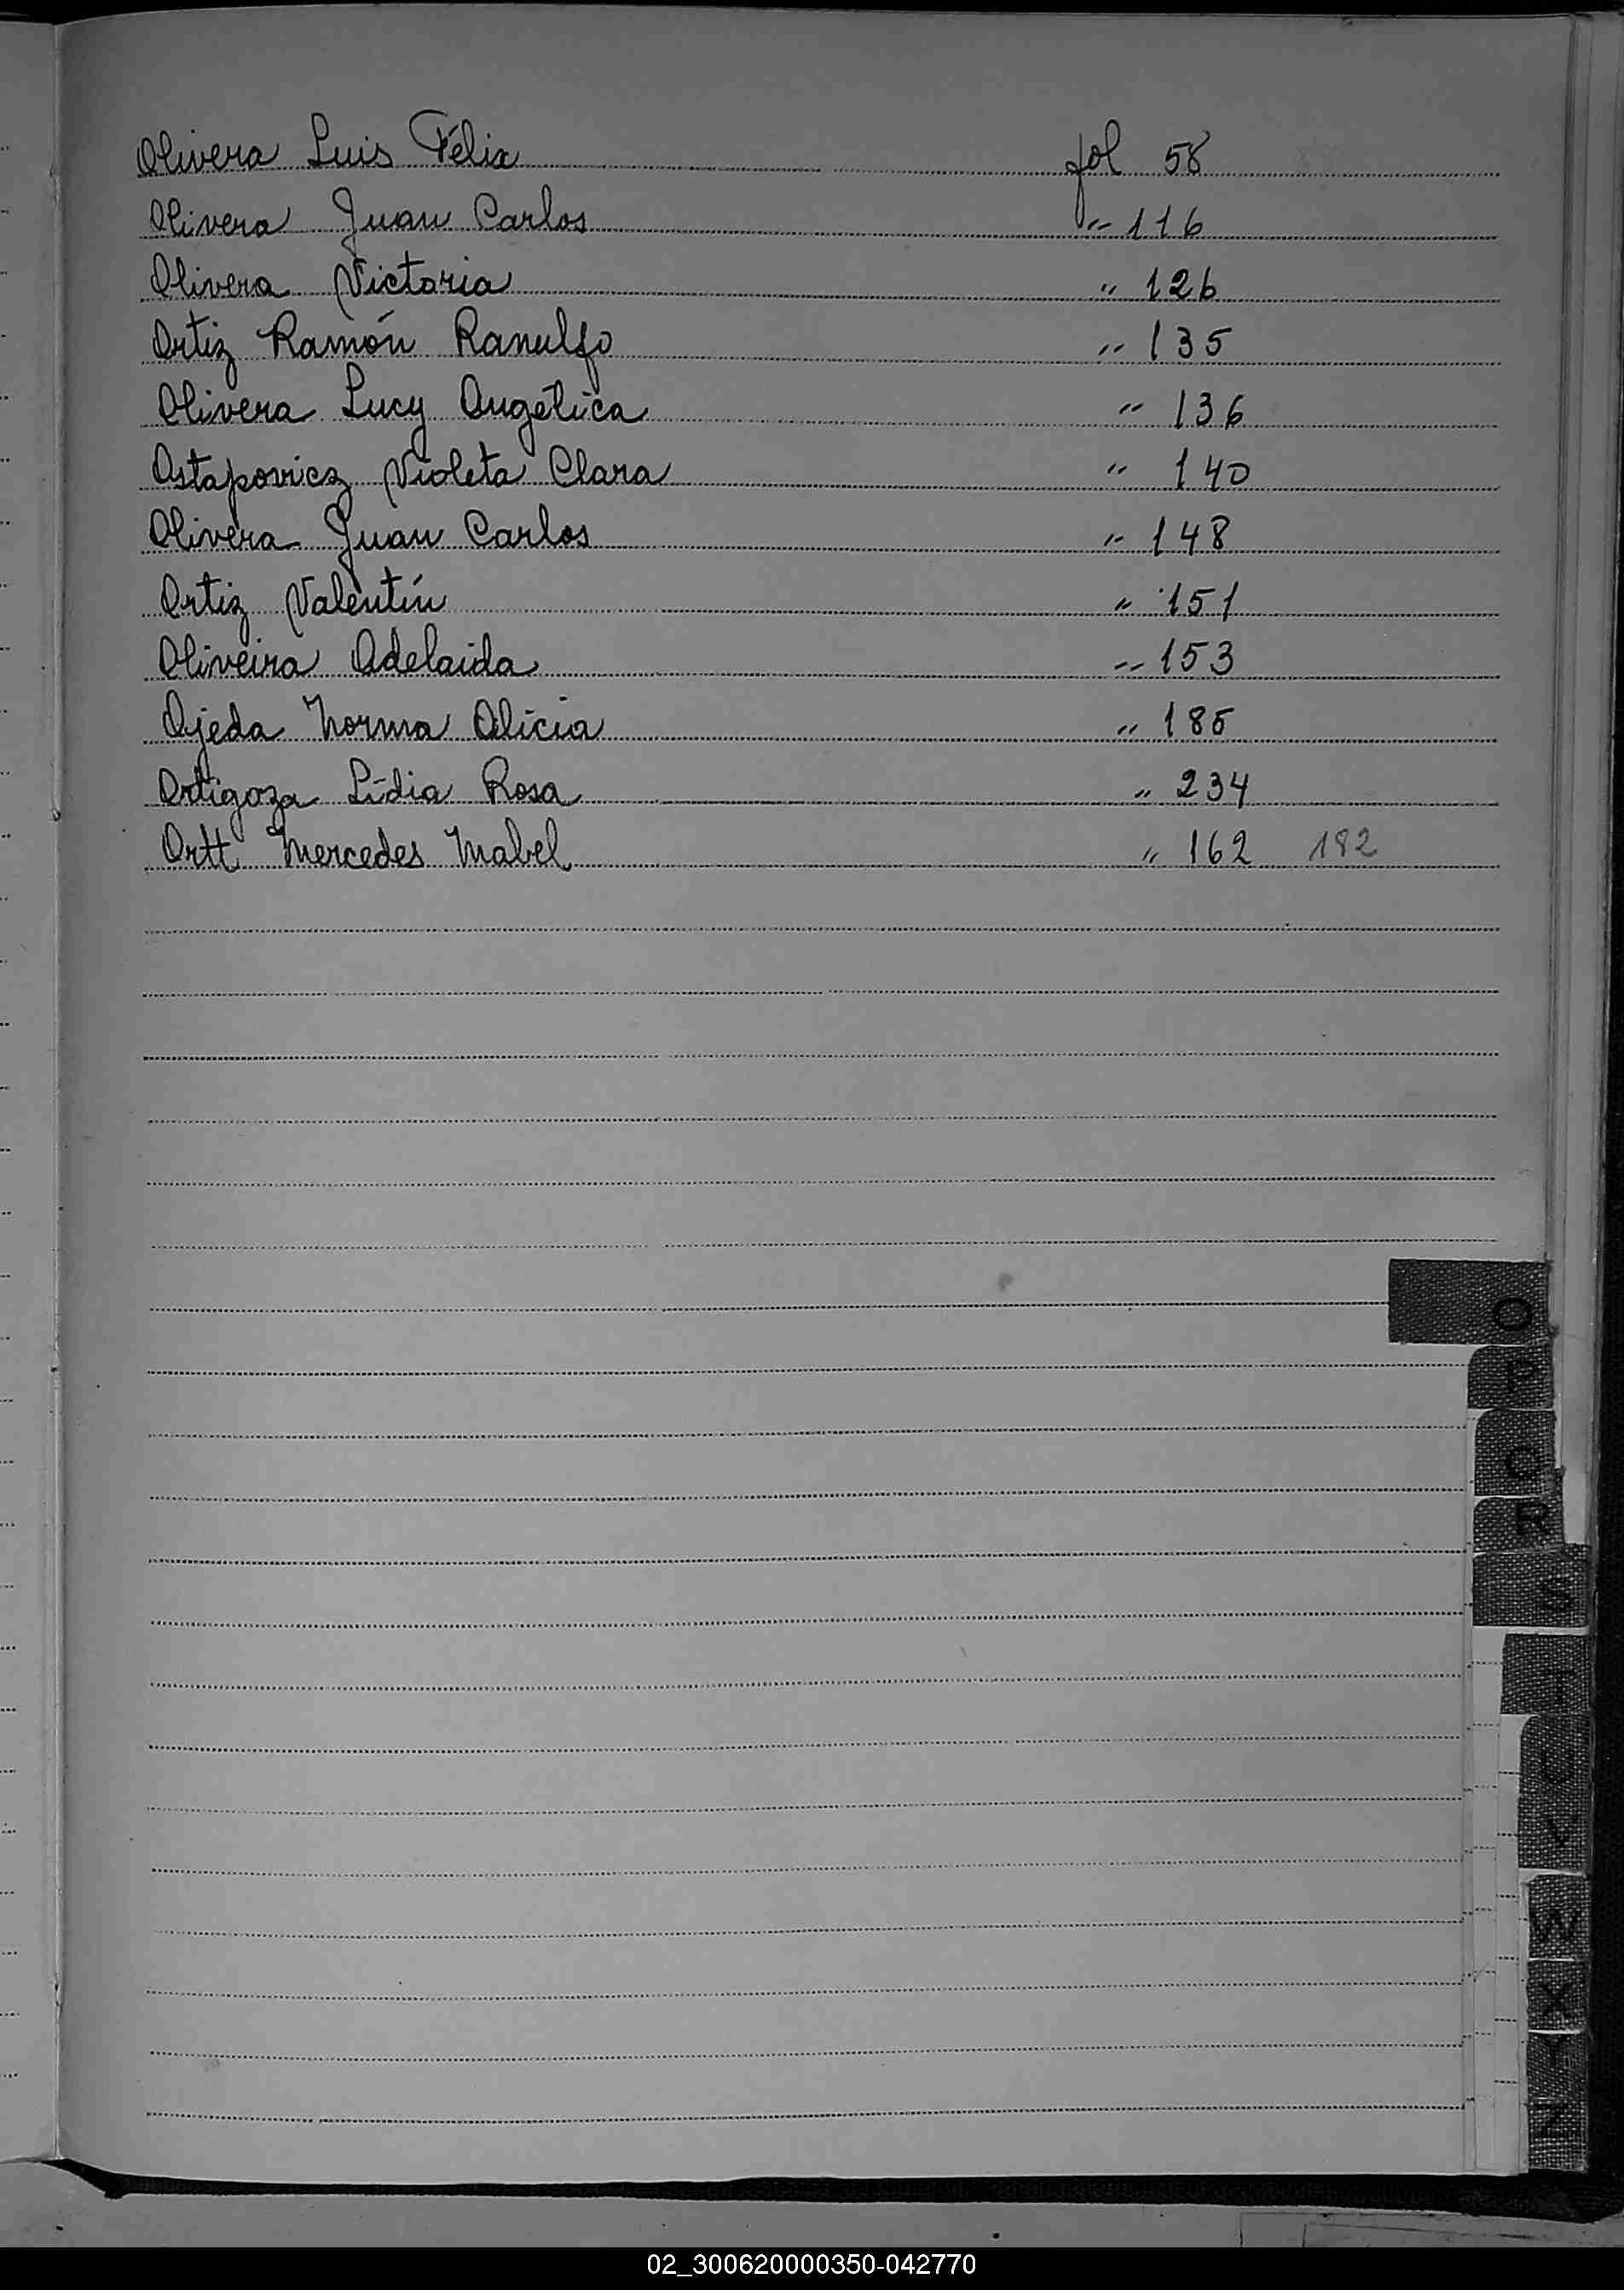 Olivera Luis Félix fol 58
Olivera Juan Carlos " 116
Olivera Victoria " 126
Ortiz Ramón Ranulfo " 135
Olivera Lucy Angélica " 136
Ostapovicz Violeta Clara " 140
Olivera Juan Carlos " 148
Ortiz Valentín " 151
Oliveira Adelaida " 153
Ojeda Norma Alicia " 185
Ortigoza Lidia Rosa " 234
Ortt Mercedes Mabel " 162 182
O
P
Q
R
S
T
U
V
W
X
Y
Z
02_300620000350-042770